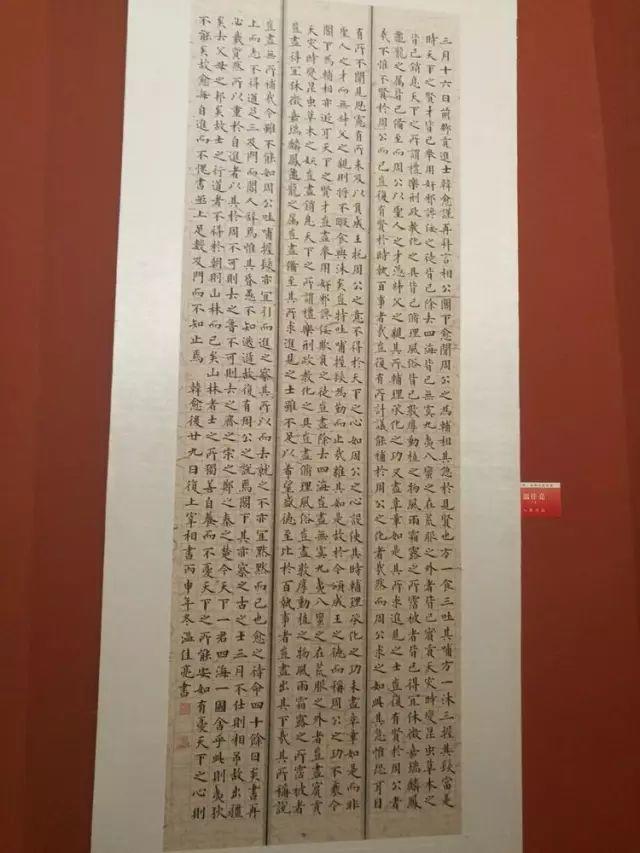 三月十六日前鄉貢進士韓愈謹再拜言相公閣下愈聞周公之為輔相其急於見賢也方一食三吐其哺方一沐三握其髮當是
時天下之賢才皆已舉用姧邪讒佞之徒皆已除去四海皆已無虞九夷八蠻之在荒服之外者皆已賓貢天灾時變昆虫草木之
妖皆已銷息天下之所謂禮樂刑政教化之具皆已脩理風俗皆已敦厚動植之物風雨霜露之所霑被者皆已得宜休徵嘉瑞麟鳳
龜龍之属皆已備至而周公以聖人之才憑叔父之親其所輔理承化之功又盡章章如是其所求進見之士豈復有賢於周公者
哉不惟不賢於周公而已豈復有賢於時百執事者哉豈復有所計議能補於周公之化者哉然而周公求之如此其急惟恐耳目
有所不聞見思慮有所未及以負成王托周公之意不得於天下之心如周公之心設使其時輔理承化之功未盡章章如是而非
聖人之才而無叔父之親則將不暇食與沐矣豈特吐哺握髮為勤而止哉維其如是故於今頌成王之德而稱周公之功不衰今
閣下為輔相亦近耳天下之賢才豈盡舉用姧邪讒佞欺負之徒豈盡除去四海豈盡無虞九夷八蠻之在荒服之外者豈盡賓貢
天灾時變昆虫草木之妖豈盡銷息天下之所謂禮樂刑政教化之具豈盡脩理風俗豈盡敦厚動植之物風雨霜露之所霑被者
豈盡得宜休徵嘉瑞麟鳳龜龍之属豈盡備至其所求進見之士雖不足以希望盛德至比於百執事者豈盡出其下哉其所稱說
豈盡無所補哉今雖不能如周公吐哺握髮亦宜引而進之察其所以而去就之不亦宜默默而已也愈之待命四十餘日矣書再
上而志不得通足三及門而閽人辭焉惟其昏愚不知逃遁故復有周公之說焉閣下其亦察之古之士三月不仕則相弔故出疆
必載質然所以重於自進者以其於周不可則去之魯不可則去之齊之宋之鄭之秦之楚今天下一君四海一國舍乎此則夷狄
矣去父母之邦矣故士之行道者不得於朝則山林而已矣山林者士之所獨善自養而不憂天下之所能安如有憂天下之心則
不能矣故愈每自進而不愧書亟上足數及門而不知止焉 韓愈後廿九日復上宰相書丙申年冬溫佳亮書
溫佳亮